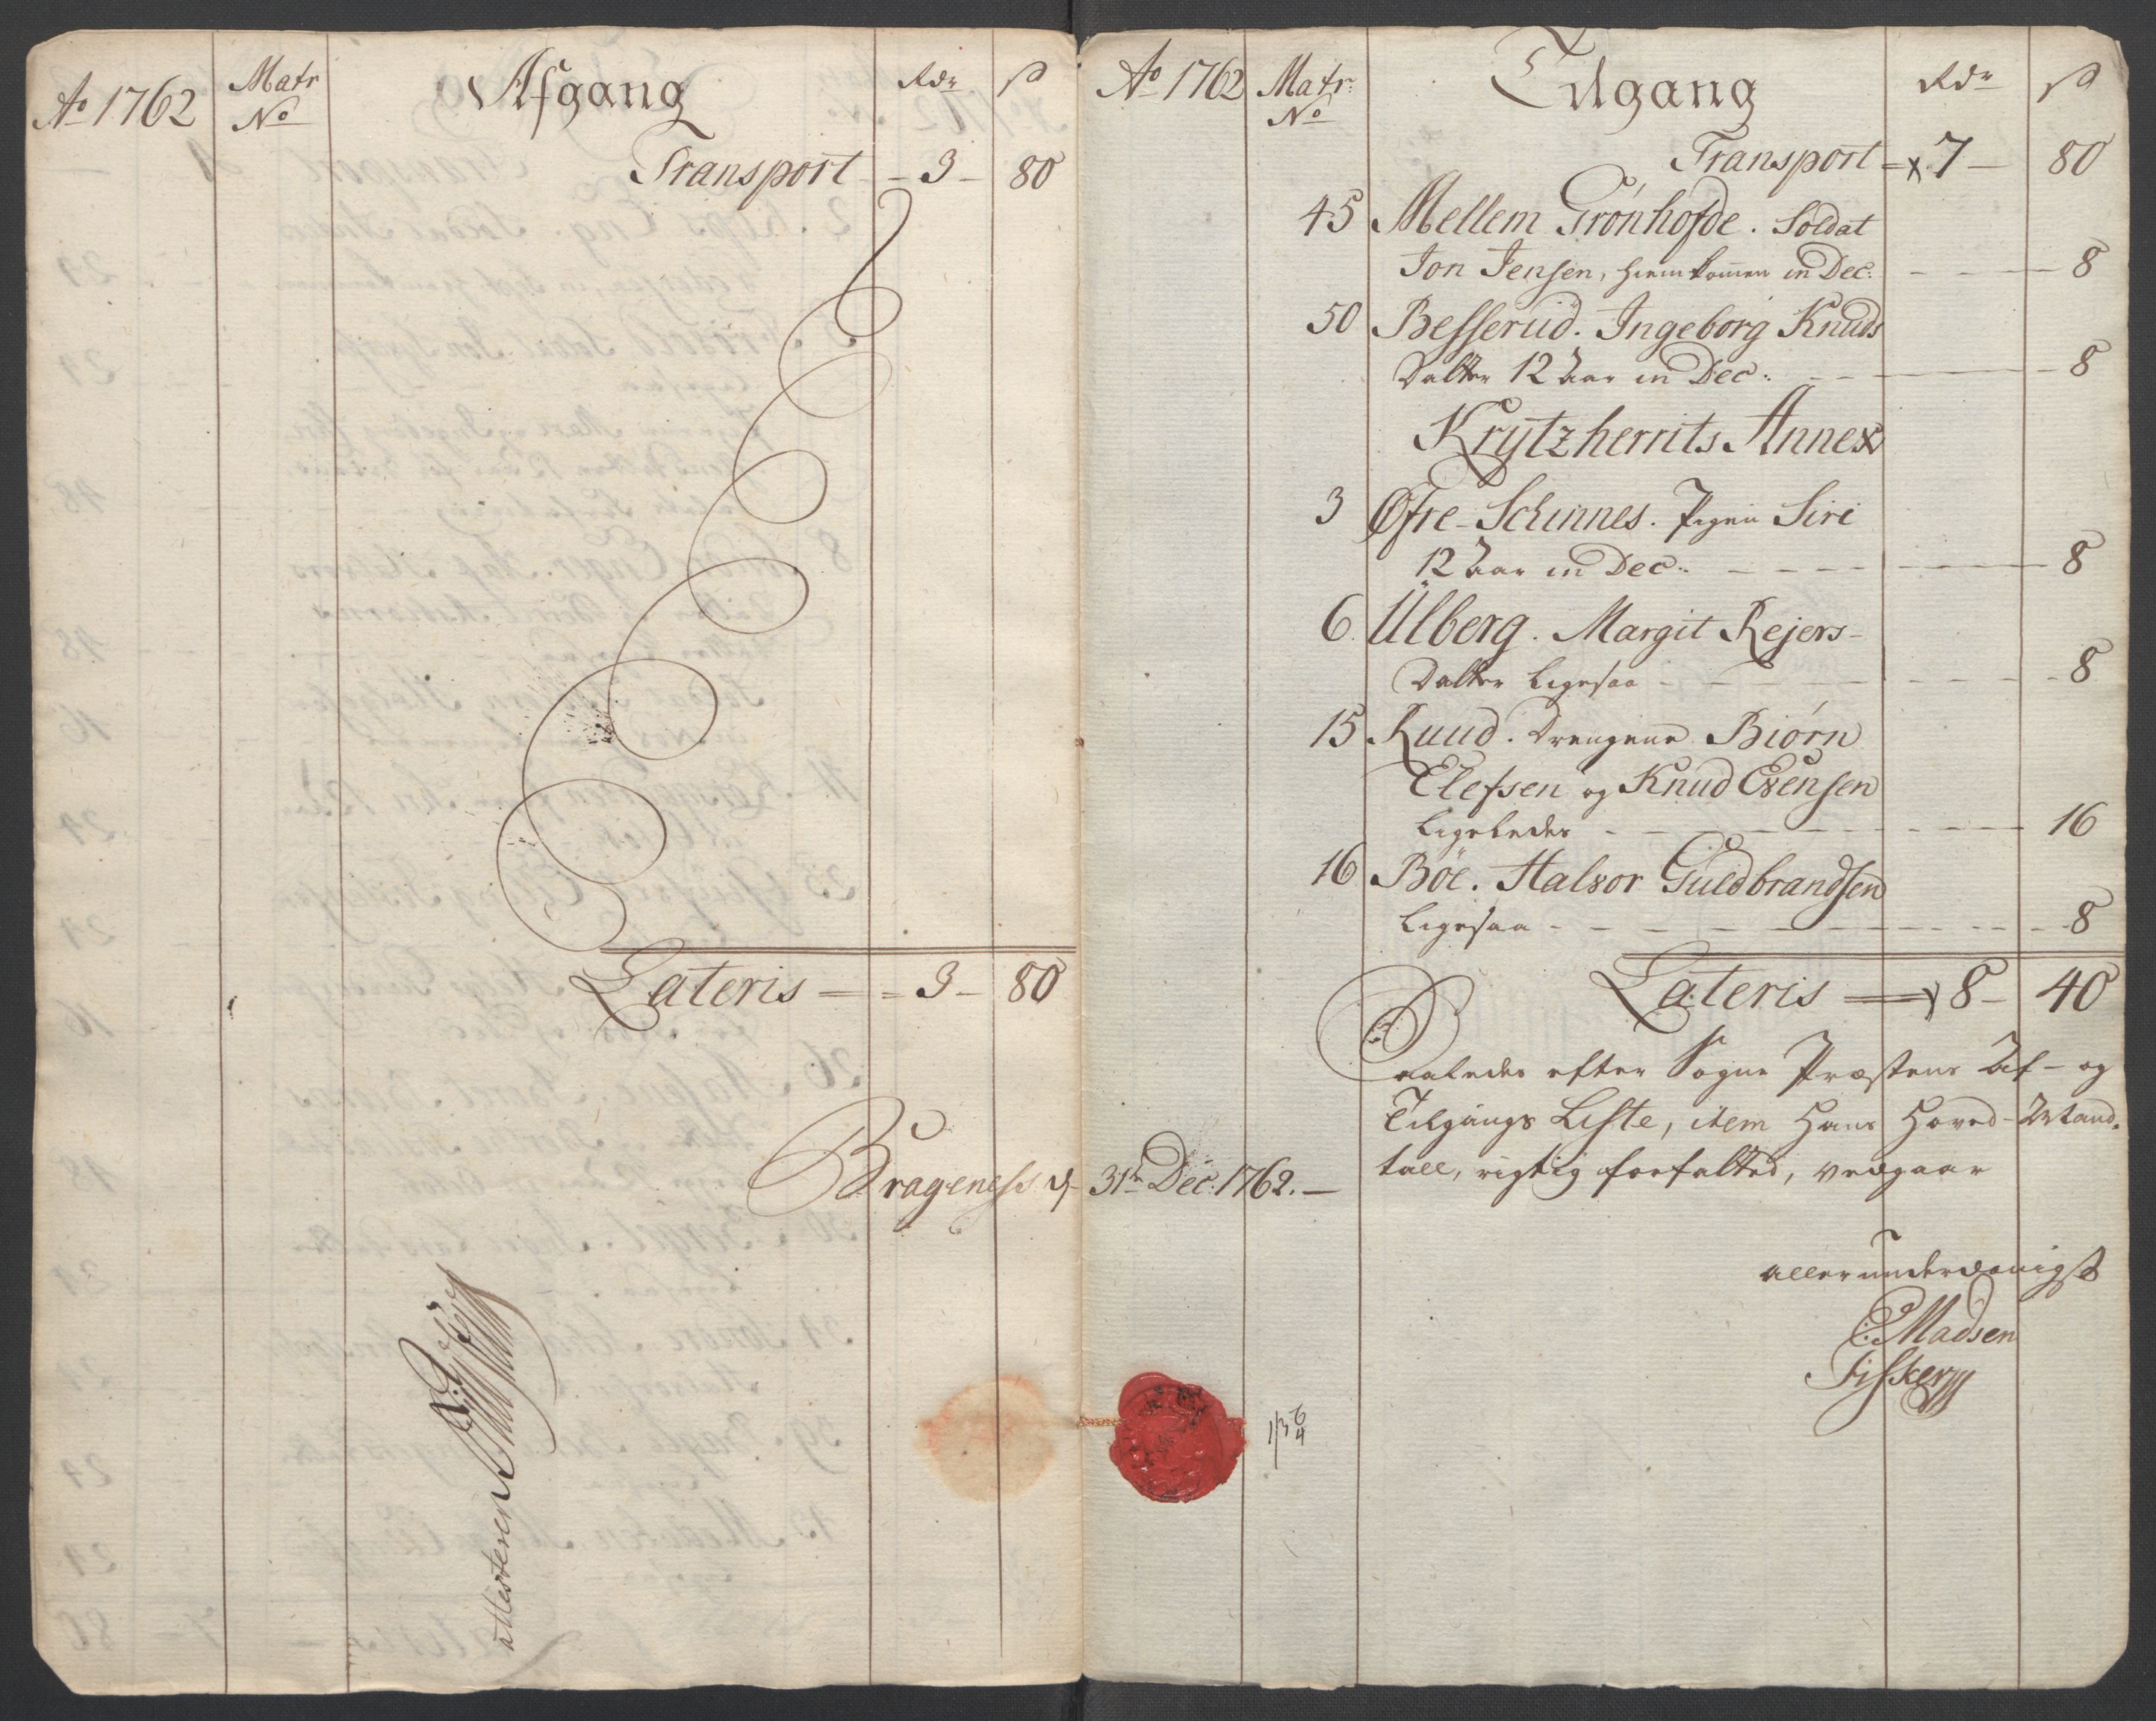 Ao 1762
Matr No
Afgang
Rdr
ß
Transport - 3 - 80
Lateris - 3 - 80
Bragenæss d.
attesterer
Ao 1762
Matr: No
Tilgang
Rdr
ß
Transport 7 - 80
45 Mellem Grønhofde. Soldat
Jon Jensen, hiemkommen in Dec: - 8
50 Besserud. Ingeborg Knuds
Datter 12 Aar in Dec: - 8
Krÿtzherrits Annex
3 Øfre-Schinnes. Pigen Siri
12 Aar in Dec: - 8
6. Ulberg. Margit Rejers-
Datter ligesaa - 8
15 Ruud. Drengene Biørn
Elefsen og Knud Evensen
ligeledes - 16
16 Bøe. Halvor Guldbrandsen
ligesaa - 8
Lateris 8 - 40
Saaledes efter Sogne Præstens Af- og
Tilgangs Liste, item hans Hoved-Mand-
tall, rigtig forfatted, vedgaar
31te Dec: 1762. -
allerunderdanigst
C Madsen
Fisker